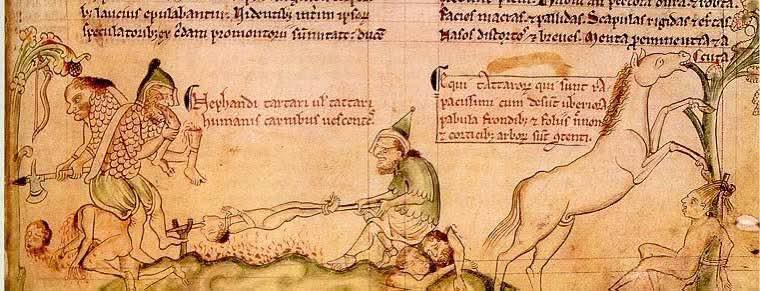 b; laucius epulabantur. Videntib; interim ipsor
speculatorib; promontorii summitate. duce
pectora dura & robusta
facies macras & pallidas. Scapulas rigidas & erectas
Nasos distortos & breves. Menta prominentia &
acuta
Nephandi tartari ul' tattari
humanis carnibus uescentes.
Equi tattaror qui sunt ra
pacissimi cum desunt uberiora
pabula frondib; & foliis
& corticib; arbor sunt contenti.